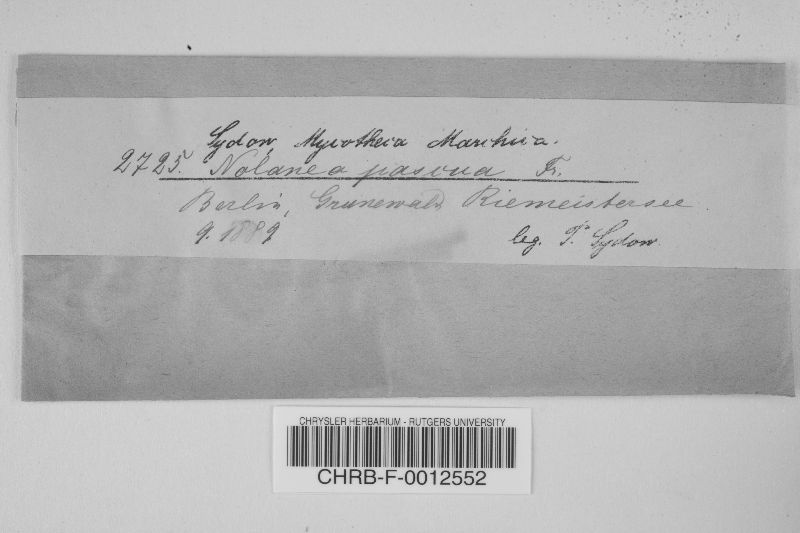 Sydow, Mycotheca Marchica.
2725. Nolanea pascua Fr.
Berlin, Grunewald, Riemeistersee.
9. 1889
leg. P. Sydow.
CHRYSLER HERBARIUM - RUTGERS UNIVERSITY
CHRB-F-0012552